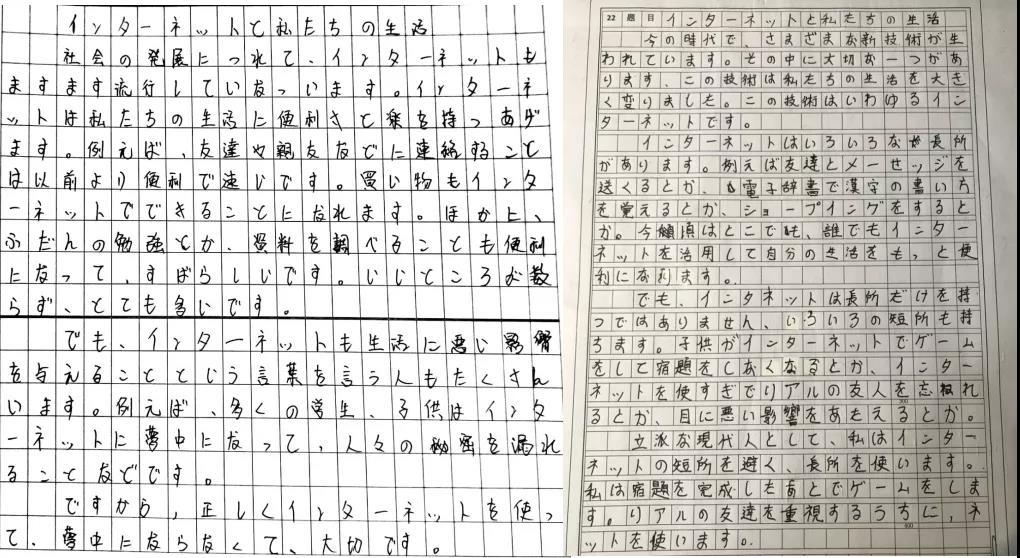 インターネットと私たちの生活
社会の発展につれて、インターネットも
ますます流行していなっいます。インターネ
ットは私たちの生活に便利さと楽を持つあげ
ます。例えば、友達や親友などに連絡すること
は以前より便利で速いです。買い物もインタ
ーネットでできることになれます。ほかに、
ふだんの勉強とか、資料を調べることも便利
になって、すばらしいです。いいところが数
らず、とても多いです。
でも、インターネットも生活に悪い影響
を与えることという言葉を言う人もたくさん
います。例えば、多くの学生、子供はインタ
ーネットに夢中になって、人々の秘密を漏れ
ることなどです。
ですから、正しくインターネットを使っ
て、夢中にならなくて、大切です。
22 題目 インターネットと私たちの生活
今の時代で、さまざまな新技術が生
われています。その中に大切な一つがあ
ります、この技術は私たちの生活を大き
く変りました。この技術はいわゆるイン
ターネットです。
インターネットはいろいろな長所
があります。例えば友達とメーセッジを
送くるとか、電子辞書で漢字の書いち
を覚えるとか、ショープイングをすると
か。今頃はとこでも、誰でもインター
ネットを活用して自分の生活をもっと便
利になります。
でも、インタネットは長所だけを持
つではありません、いろいろの短所も持
ちます。子供がインターネットでゲーム
をして宿題をしなくなるとか、インター
ネットを使すぎでリアルの友人を忘れ
るとか、目に悪い影響をあたえるとか。
立派な現代人として、私はインター
ネットの短所を避く、長所を使います。
私は宿題を完成したあとでゲームをしま
す。リアルの友達を重視するうちに、ネ
ットを使います。